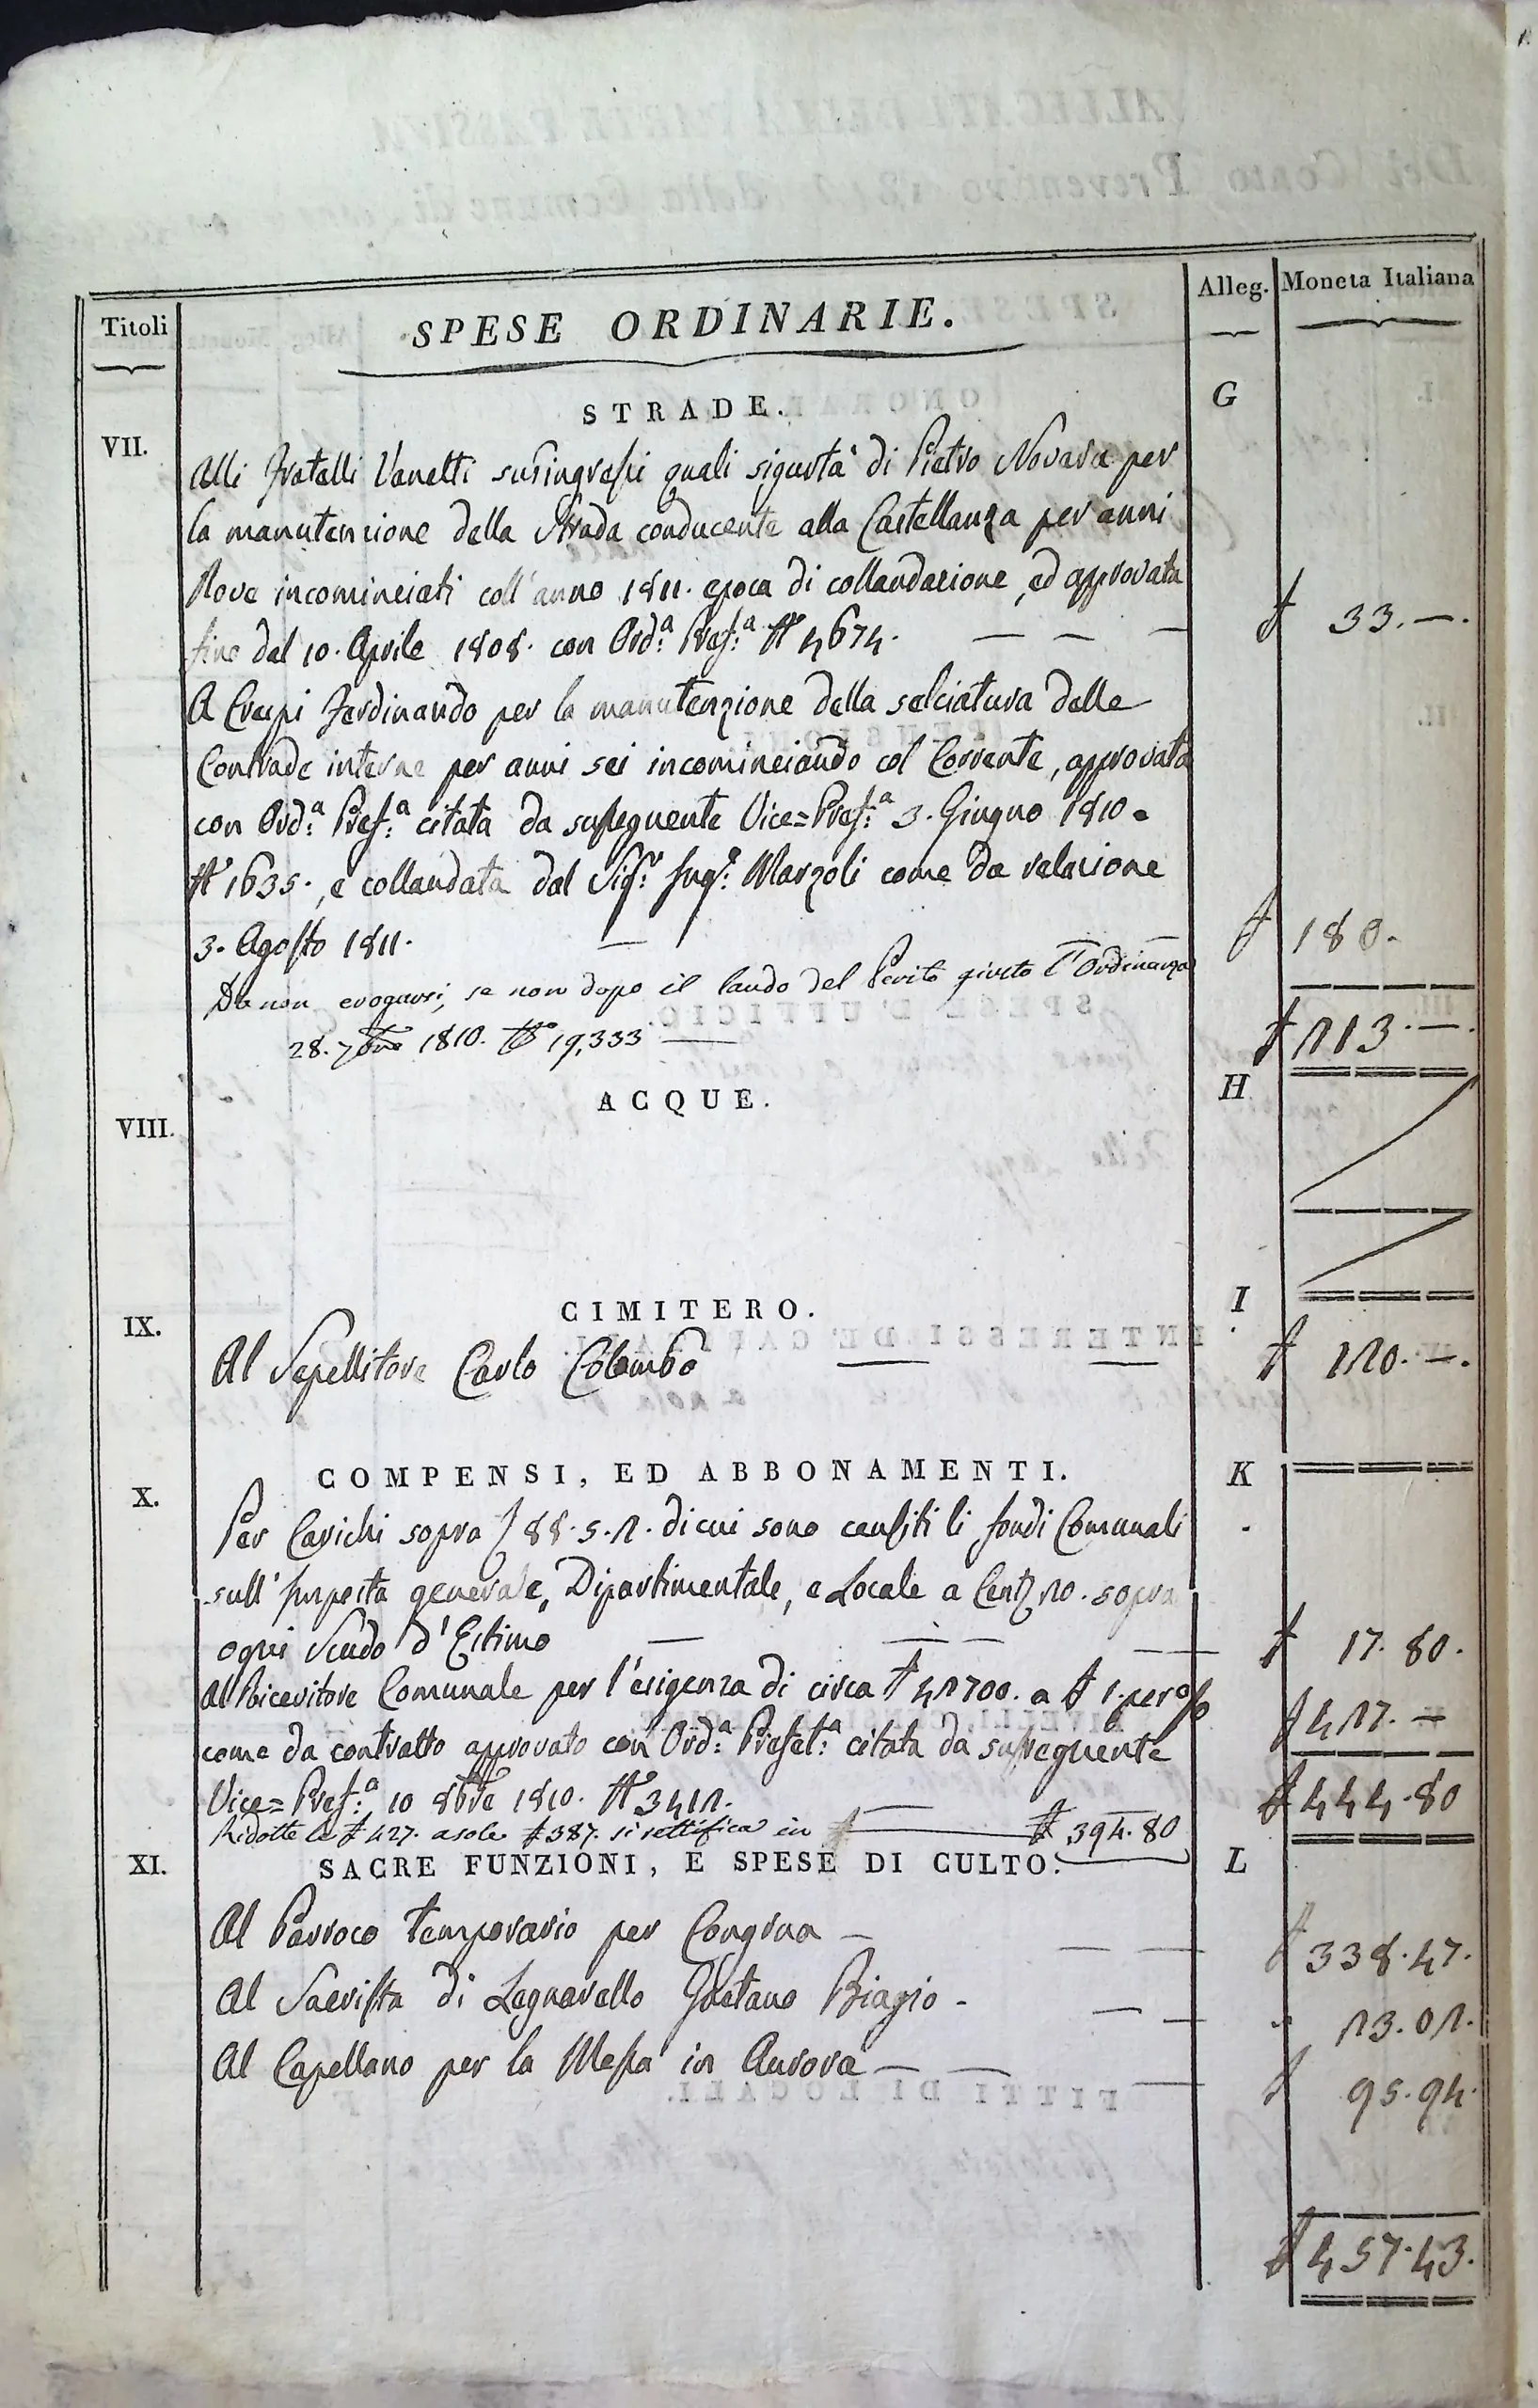 Titoli
SPESE ORDINARIE.
Alleg.
Moneta Italiana
STRADE.
G
VII.
Alli Fratelli Vanetti susingressi quali sigurtà di Pietro Novara per
la manutenzione della Strada conducente alla Castellanza per anni
Nove incominciati coll'anno 1811. epoca di collaudazione, ed approvata
fino dal 10. Aprile 1808. con Ord.ª Pref.ª N° 4674. — — —
£ 33. —.
A Crespi Ferdinando per la manutenzione della selciatura delle
Contrade interne per anni sei incominciando col Corrente, approvata
con Ord.ª Pref.ª citata da susseguente Vice=Pref.ª 3. Giugno 1810.
N° 1635., e collaudata dal Sig.r Ing.e Marzoli come da relazione
3. Agosto 1811. —
£ 180.
Da non erogarsi, se non dopo il laudo del Perito giusta l'Ordinanza
28. 7bre 1810. N° 19,333 —
£ 213. —.
ACQUE.
H
VIII.
CIMITERO.
I
IX.
Al Sepellitore Carlo Colombo — —
£ 120. —.
COMPENSI, ED ABBONAMENTI.
K
X.
Per Carichi sopra 88. 5. 2. di cui sono censiti li fondi Comunali
sull'Imposta generale, Dipartimentale, e Locale a Cent. 20. sopra
ogni Scudo d'Estimo — — —
£ 17. 80.
Al Ricevitore Comunale per l'esigenza di circa £ 42700. a £ 1. per %
£ 427. —
come da contratto approvato con Ord.ª Prefet.ª citata da susseguente
Vice=Pref.ª 10 8bre 1810. N° 3412. —
£ 444. 80
Ridotte le £ 427. a sole £ 387. si rettifica in £ — £ 394. 80
XI.
SACRE FUNZIONI, E SPESE DI CULTO.
L
Al Parroco temporario per Congrua — — —
£ 338. 47.
Al Sacrista di Legnarello Gaetano Biagio - — —
" 23. 02.
Al Capellano per la Messa in Aurora — — —
£ 95. 94.
£ 457. 43.